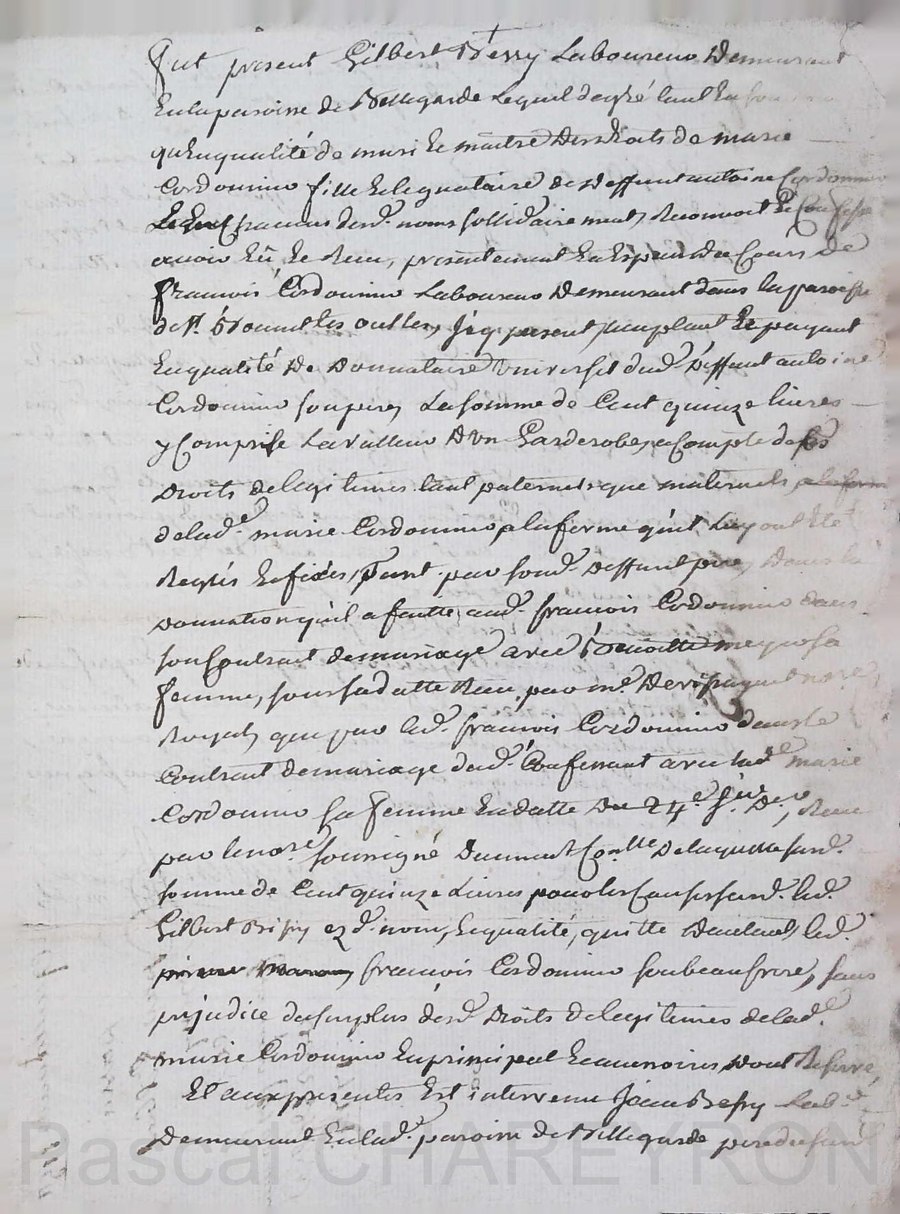 fut présent Gilbert Bessy Laboureur Demeurant
En la paroisse de Bellegarde Lequel de gré tant En son
qu'En qualité de mari Et maître Des droits de marie
Cordonnino fille Et legataire de deffunt antoine Cordonnino
Chacun desd. noms sollidairement, Reconnoit Et Confesse
avoir Eü Et Receu, présentement En Espèces de Cours de
françois Cordonnino Laboureur Demeurant dans la paroisse
de St. Bonnet les oulles, Icy présent, acceptant Et payant
En qualité De Donnataire Universel dud. Deffunt antoine
Cordonnino son pere, La somme de Cent quinze livres
y Comprise La valleur D'vn Garderobe, a Compte de ses
Droits de legitimes tant paternels que maternels
de lad. marie Cordonnino, a la forme qu'ils Luy ont Eté
Reglés Et fixés, tant par sond. deffunt pere, Dans la
Donnation qu'il a faitte aud. françois Cordonnino dans
son Contrat de mariage avec Benoitte sa
femme, sous sa datte Receu par me. no.re
Royal, que par led. françois Cordonnino dans le
Contrat de mariage dud. Confessant avec lad. marie
Cordonnino sa femme En datte Du 24.e Receu
par le no.re soussigné Deument Con.lle De laquelle susd.
somme de Cent quinze Livres pour les Causes susd. led.
Gilbert Bessy ezd. nom, Et qualité, quitte D'autant led.
françois Cordonnino son beau frere, sans
prejudice du surplus desd. Droits de legitimes de lad.
marie Cordonnino En principal Et accessoires, Dont Reserve,
Et aux presentes Est intervenu Jean Bessy Lab.r
Demeurant En lad. paroisse de Bellegarde pere dud.
Pascal CHAREYRON